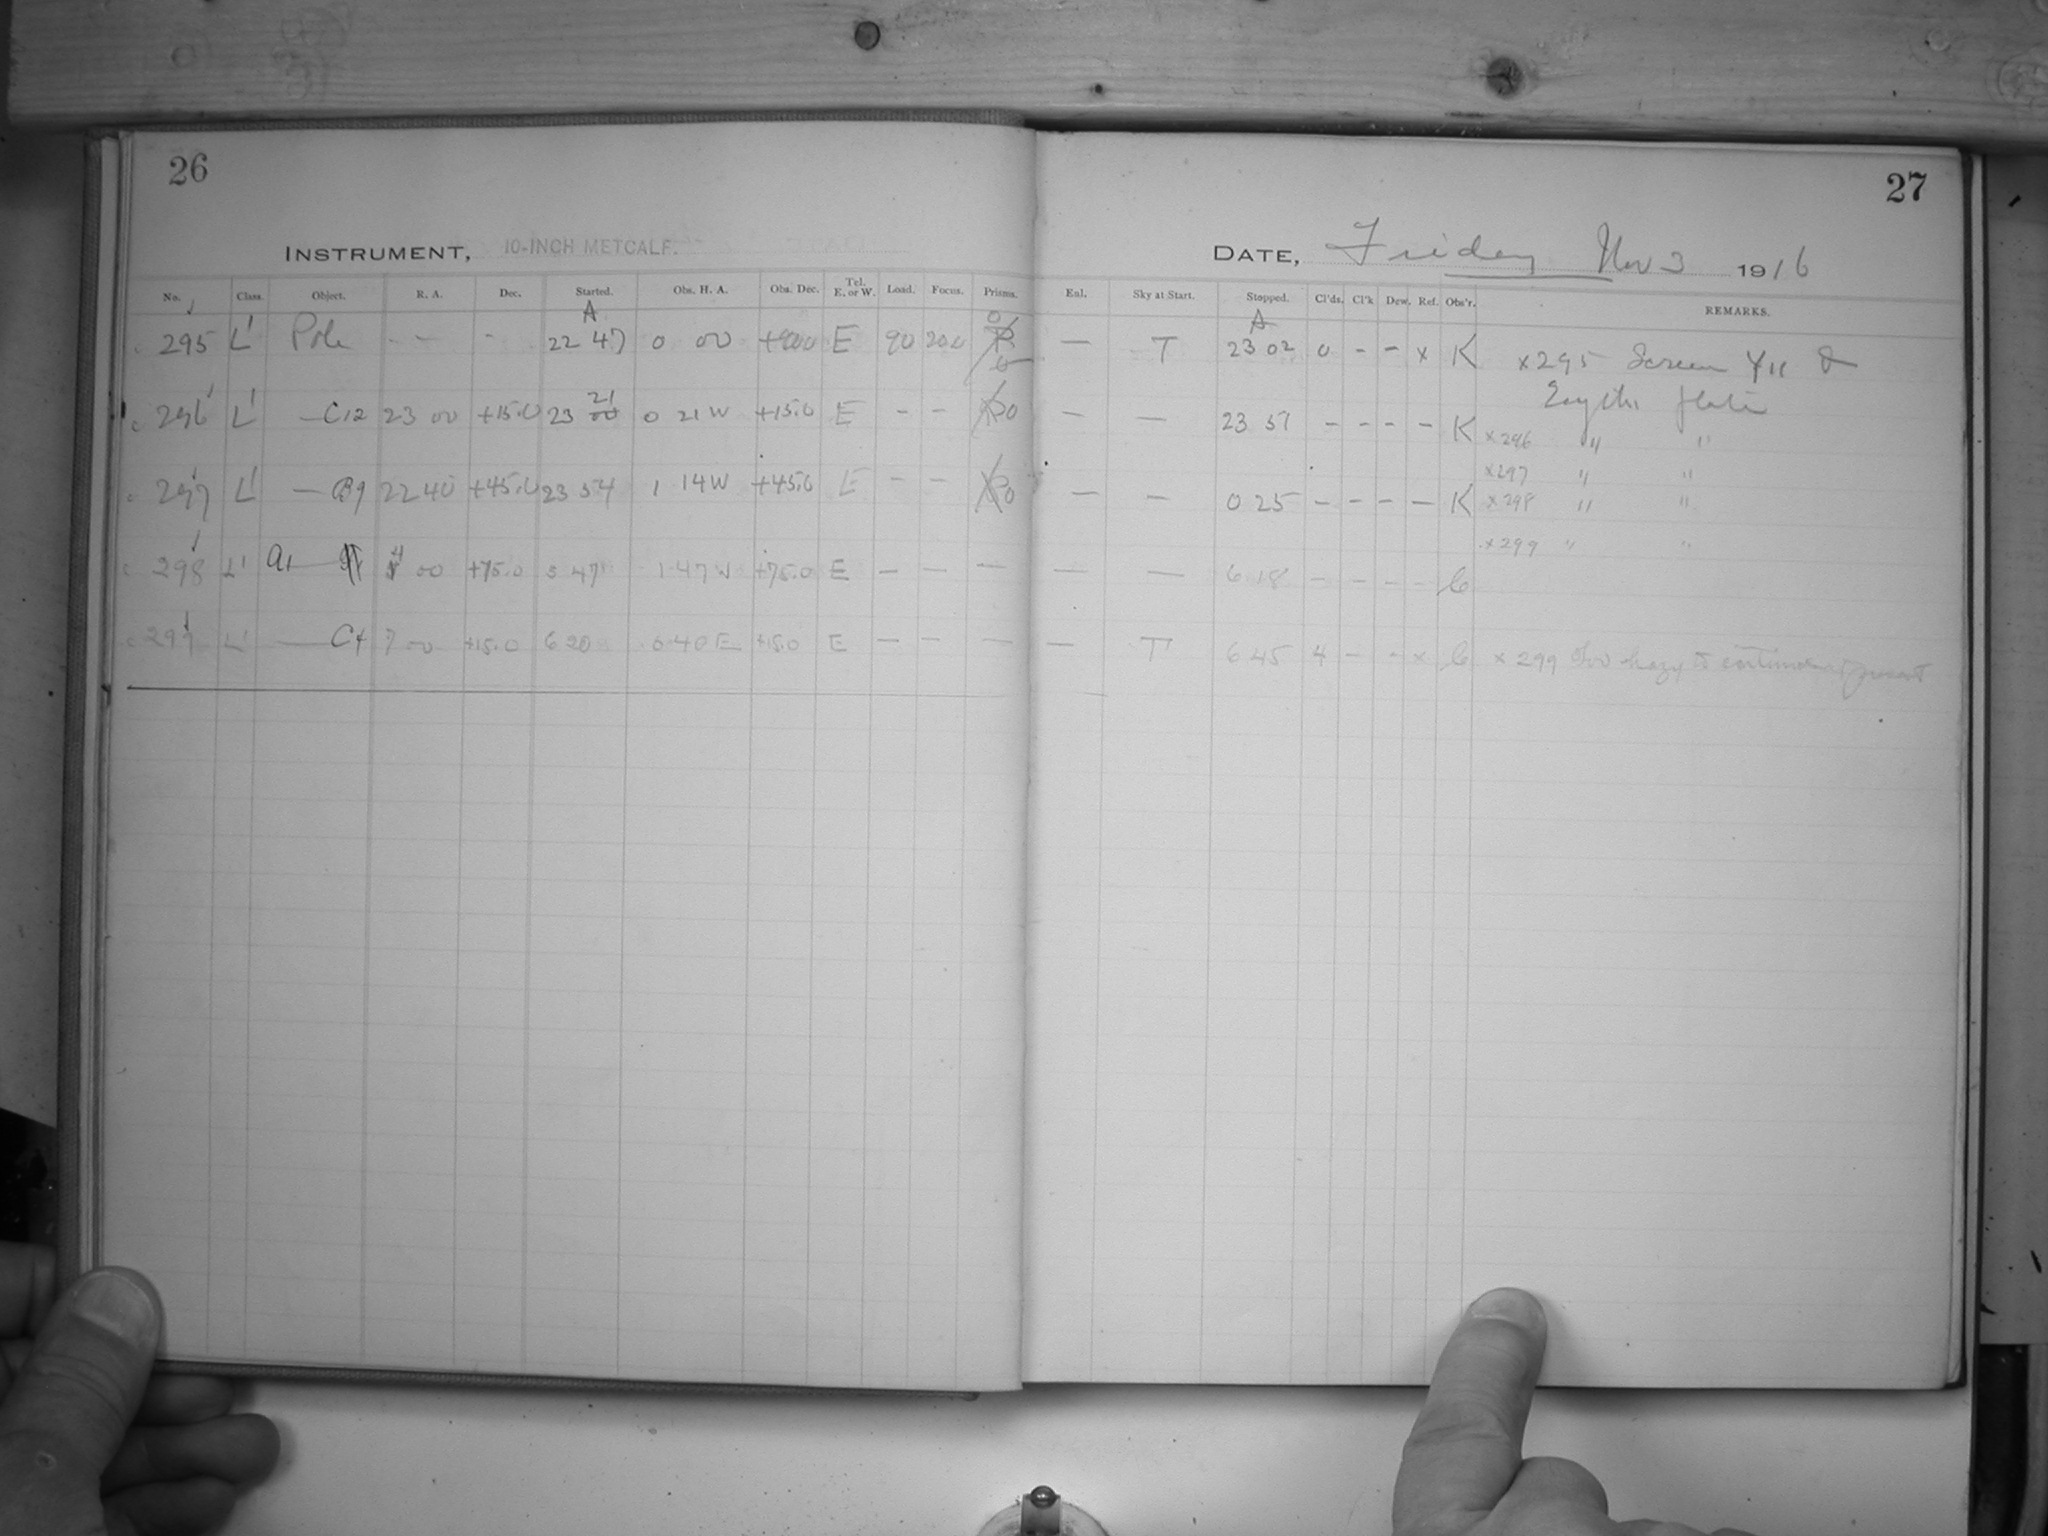 26
27
INSTRUMENT, 10-INCH METCALF.
DATE, Friday Nov 3 1916
No. Class. Object. R. A. Dec. Started. Obs. H. A. Obs. Dec. Tel. E. or W. Load. Focus. Prisms. Enl. Sky at Start. Stopped. Cl'ds. Cl'k Dew. Ref. Obs'r. REMARKS.
A A
295 L' Pole - - - 22 47 0 00 +90.0 E 90 20.0 0 — T 23 02 0 - - x K x295 Screen Y11 &
296 L' — C12 23 00 +15.0 23 21 0 21 W +15.0 E - - 0 — — 23 51 - - - - K
x296 " "
x297 " "
297 L' — B9 22 40 +45.0 23 54 1 14 W +45.0 E - - 0 — — 0 25 - - - - K x298 " "
x299 " "
298 L' A1 — 4 00 +75.0 5 47 1 47 W +75.0 E — — — — — 6 18 - - - - C
299 L' — C4 7 00 +15.0 6 20 0 40 E +15.0 E — — — — T 6 45 4 - - x C x 299 too hazy to continue at present